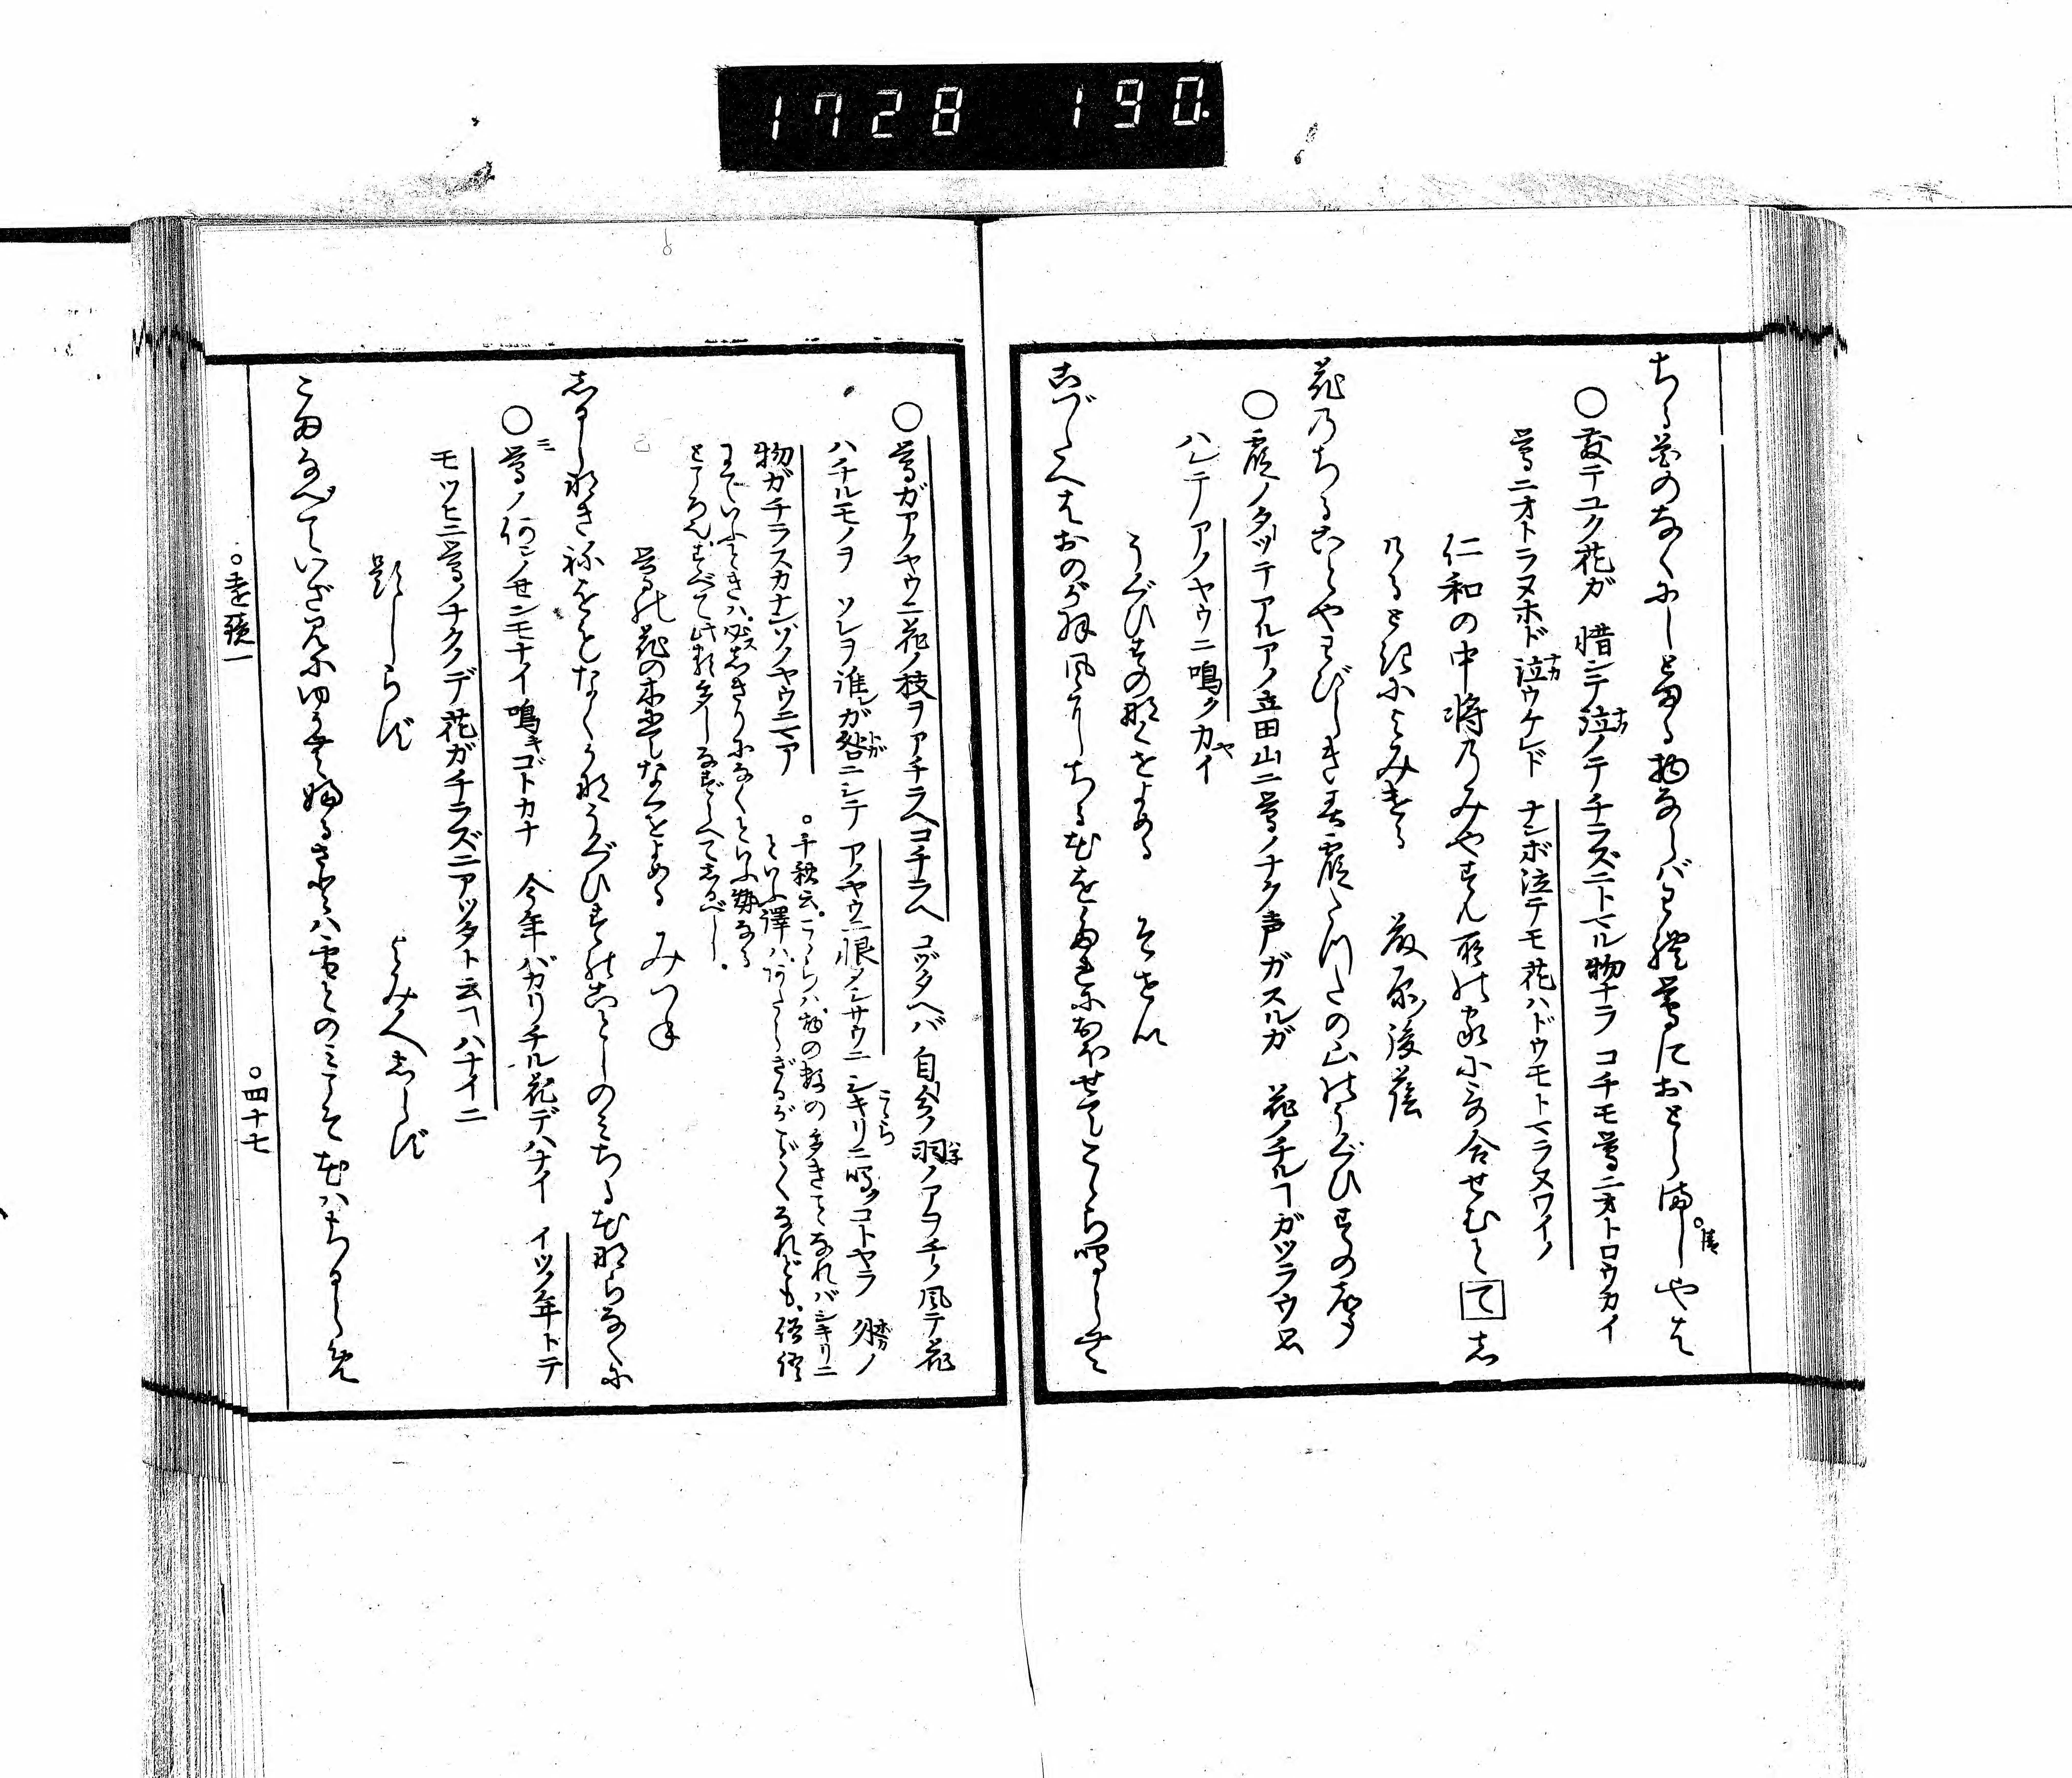 1728 190.
ちる花のなくにしとまる物ならばわれ鶯におとらましやは
○散テユク花ガ 惜シテ泣ノテチラズニトマル物ナラ コチモ鶯ニオトロウカイ
鶯ニオトラヌホド泣ウケレド ナンボ泣テモ花ハドウモトマラヌワイノ
仁和の中将のみやすん所の家に哥合せむとてし
けるときによみける 藤原後蔭
花のちることやわびしき春霞たつたの山のうぐひすの声
○霞ノタツテアルアノ立田山ニ鶯ノナク声ガスルガ 花ノチルヿガツラウ思
ハレテアノヤウニ鳴クカイ
うぐひすの鳴くをよめる そせい
こづたへばおのが羽風にちる花をたれにおほせてここら鳴くらむ
○鶯ガアノヤウニ花ノ枝ヲアチラヘコチラヘ コヅタヘバ 自分ノ羽ノアヲチノ風デ花
ハチルモノヲ ソレヲ誰ガ咎ニシテ アノヤウニ恨メシサウニ シキリニ鳴クコトヤラ 外ノ
物ガチラスカナンゾノヤウニマア
○千秋云。ここらは物の数の多きことなればシキリニ
といふ譯は、あたらざるがごとくなれども、俗語
までいふときは、必ずしきりになくといふ勢なる
ところ也。すべて此類多し。なずらへてしるべし。
鶯の花の木にてなくをよめる みつね
しるしなき音をもなくかなうぐひすのことしのみちる花ならなくに
○鶯ノ何ンノセンモナイ鳴キゴトカナ 今年バカリチル花デハナイ イツノ年トテ
モツヒニ鶯ノナクノデ花ガチラズニアツタト云ヿハナイニ
題しらず よみ人しらず
こまなべていざ見にゆかむ故るさとは雪とのみこそ花はちるらめ
○遠鏡一 ○四十七